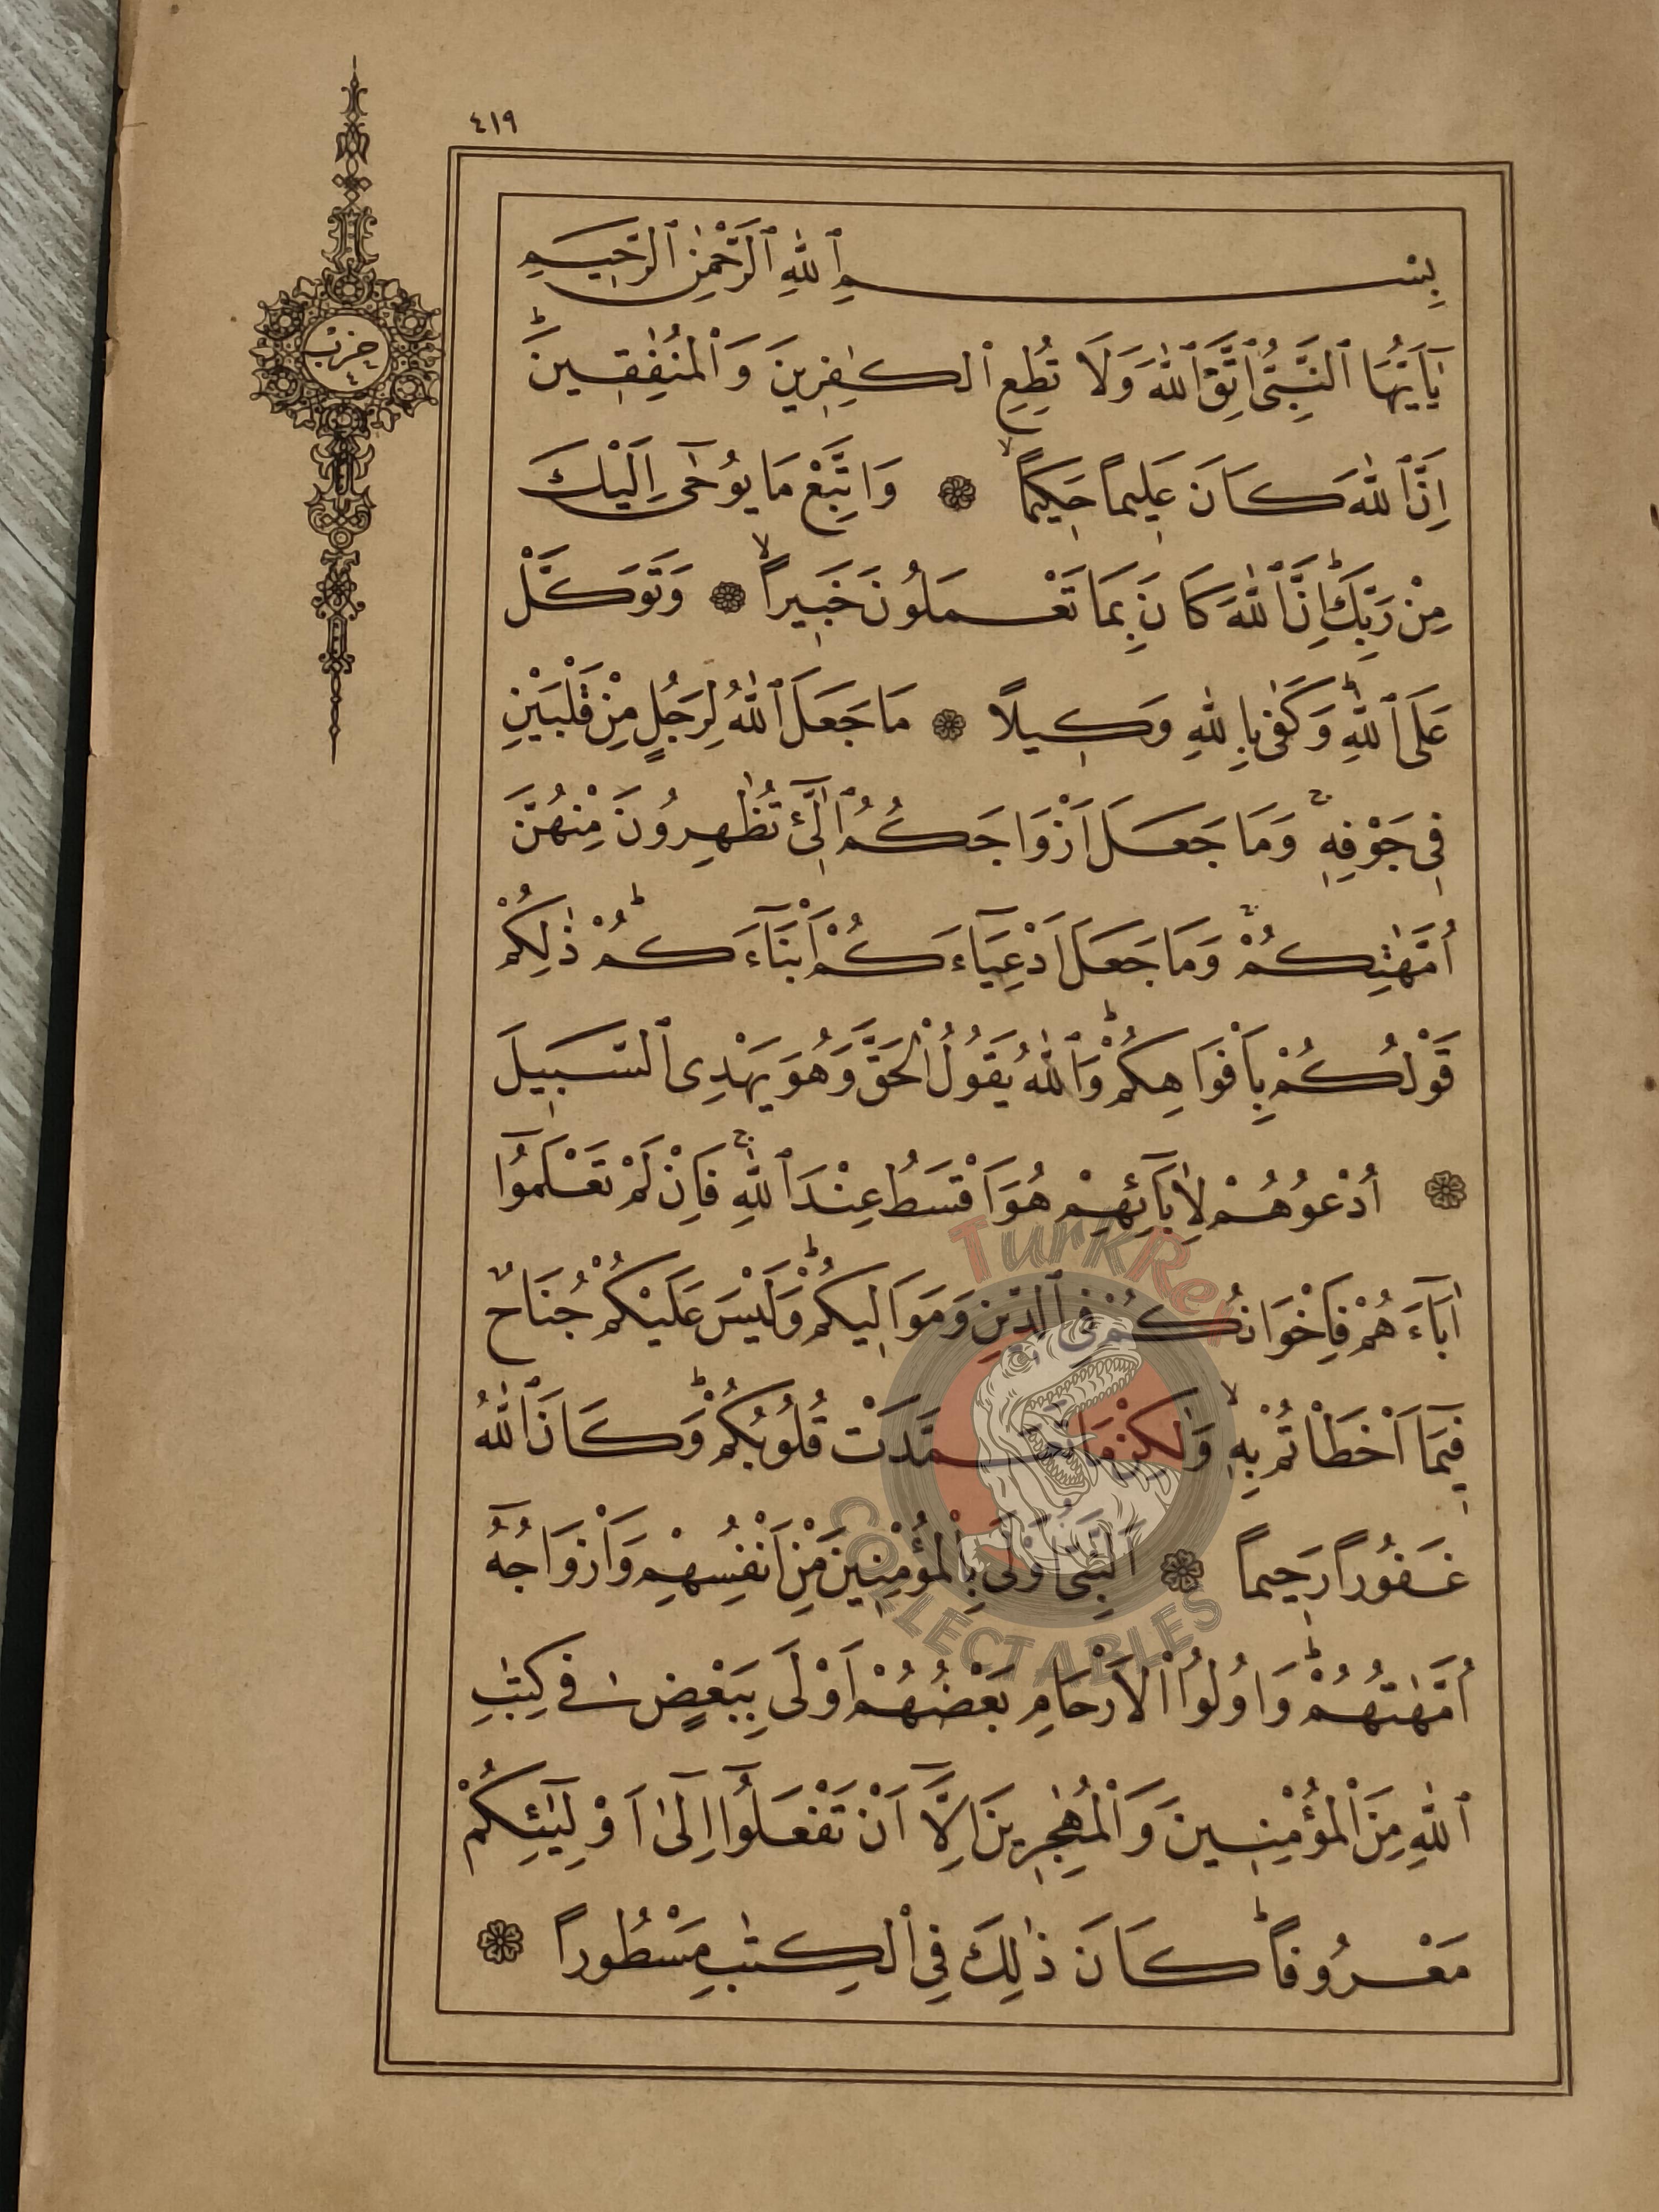 ٤١٩
حزب
٤
بِسْمِ ٱللّٰهِ ٱلرَّحْمٰنِ ٱلرَّحِيمِ
يَٓا اَيُّهَا ٱلنَّبِىُّ ٱتَّقِ ٱللّٰهَ وَلَا تُطِعِ ٱلْكٰفِرِينَ وَٱلْمُنٰفِقِينَۜ
اِنَّ ٱللّٰهَ كَانَ عَلِيماً حَكِيماًۙ ❁ وَاتَّبِعْ مَا يُوحٰٓى اِلَيْكَ
مِنْ رَبِّكَۜ اِنَّ ٱللّٰهَ كَانَ بِمَا تَعْمَلُونَ خَبِيراًۙ ❁ وَتَوَكَّلْ
عَلَى ٱللّٰهِۜ وَكَفٰى بِاللّٰهِ وَكِيلاً ❁ مَا جَعَلَ ٱللّٰهُ لِرَجُلٍ مِنْ قَلْبَيْنِ
فِى جَوْفِهِۚ وَمَا جَعَلَ اَزْوَاجَكُمُ ٱلّٰٓئِ تُظٰهِرُونَ مِنْهُنَّ
اُمَّهٰتِكُمْۚ وَمَا جَعَلَ اَدْعِيَٓاءَكُمْ اَبْنَٓاءَكُمْۜ ذٰلِكُمْ
قَوْلُكُمْ بِاَفْوَاهِكُمْۜ وَٱللّٰهُ يَقُولُ ٱلْحَقَّ وَهُوَ يَهْدِى ٱلسَّبِيلَ
❁ اُدْعُوهُمْ لِاٰبَٓائِهِمْ هُوَ اَقْسَطُ عِنْدَ ٱللّٰهِۚ فَاِنْ لَمْ تَعْلَمُٓوا
اٰبَٓاءَهُمْ فَاِخْوَانُكُمْ فِى ٱلدِّينِ وَمَوَالِيكُمْۜ وَلَيْسَ عَلَيْكُمْ جُنَاحٌ
فِيمَٓا اَخْطَأْتُمْ بِهِۙ وَلٰكِنْ مَا تَعَمَّدَتْ قُلُوبُكُمْۜ وَكَانَ ٱللّٰهُ
غَفُوراً رَحِيماً ❁ اَلنَّبِىُّ اَوْلٰى بِالْمُؤْمِنِينَ مِنْ اَنْفُسِهِمْ وَاَزْوَاجُهُٓ
اُمَّهٰتُهُمْۜ وَاُولُوا ٱلْاَرْحَامِ بَعْضُهُمْ اَوْلٰى بِبَعْضٍ فِى كِتٰبِ
ٱللّٰهِ مِنَ ٱلْمُؤْمِنِينَ وَٱلْمُهٰجِرِينَ اِلَّٓا اَنْ تَفْعَلُٓوا اِلٰٓى اَوْلِيَٓائِكُمْ
مَعْرُوفاًۜ كَانَ ذٰلِكَ فِى ٱلْكِتٰبِ مَسْطُوراً ❁
TurkRex
COLLECTABLES